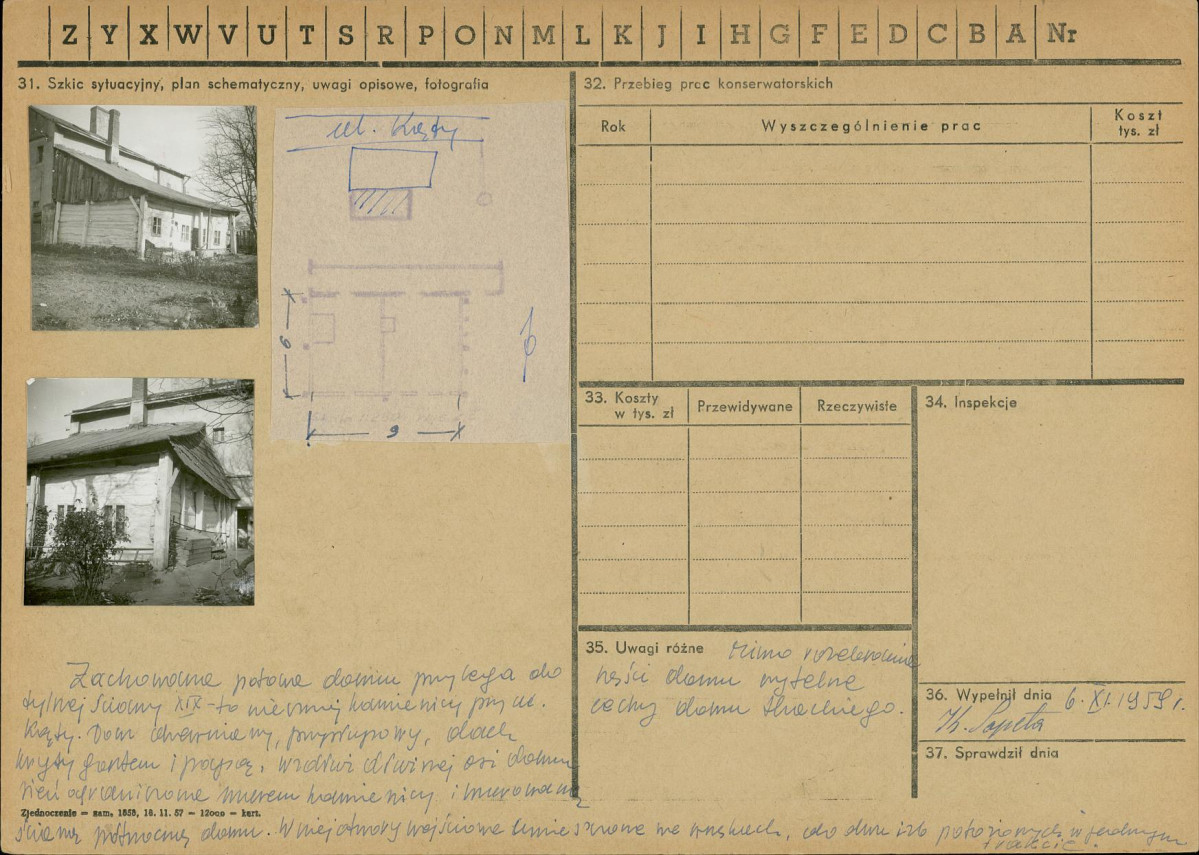 Z Y X W V U T S R P O N M L K J I H G F E D C B A Nr
31. Szkic sytuacyjny, plan schematyczny, uwagi opisowe, fotografia
ul. Kąty
9
6
Zachowana połowa domu przylega do
tylnej ściany XIX-to wiecznej kamienicy przy ul.
Kąty. Dom drewniany, przysłupowy, dach
kryty gontem i papą, wzdłuż dłuższej osi domu
sień ograniczona murem kamienicy i murowaną
Zjednoczenie — zam. 1855, 16. 11. 57 — 12000 — kart.
ścianą północną domu. W niej otwory wejściowe umieszczone we wnękach, do dwu izb położonych w jednym
trakcie.
32. Przebieg prac konserwatorskich
Rok
Wyszczególnienie prac
Koszt
tys. zł
33. Koszty
w tys. zł
Przewidywane
Rzeczywiste
34. Inspekcje
35. Uwagi różne Mimo rozebrania
części domu czytelne
cechy domu tkackiego.
36. Wypełnił dnia 6. XI. 1959 r.
37. Sprawdził dnia